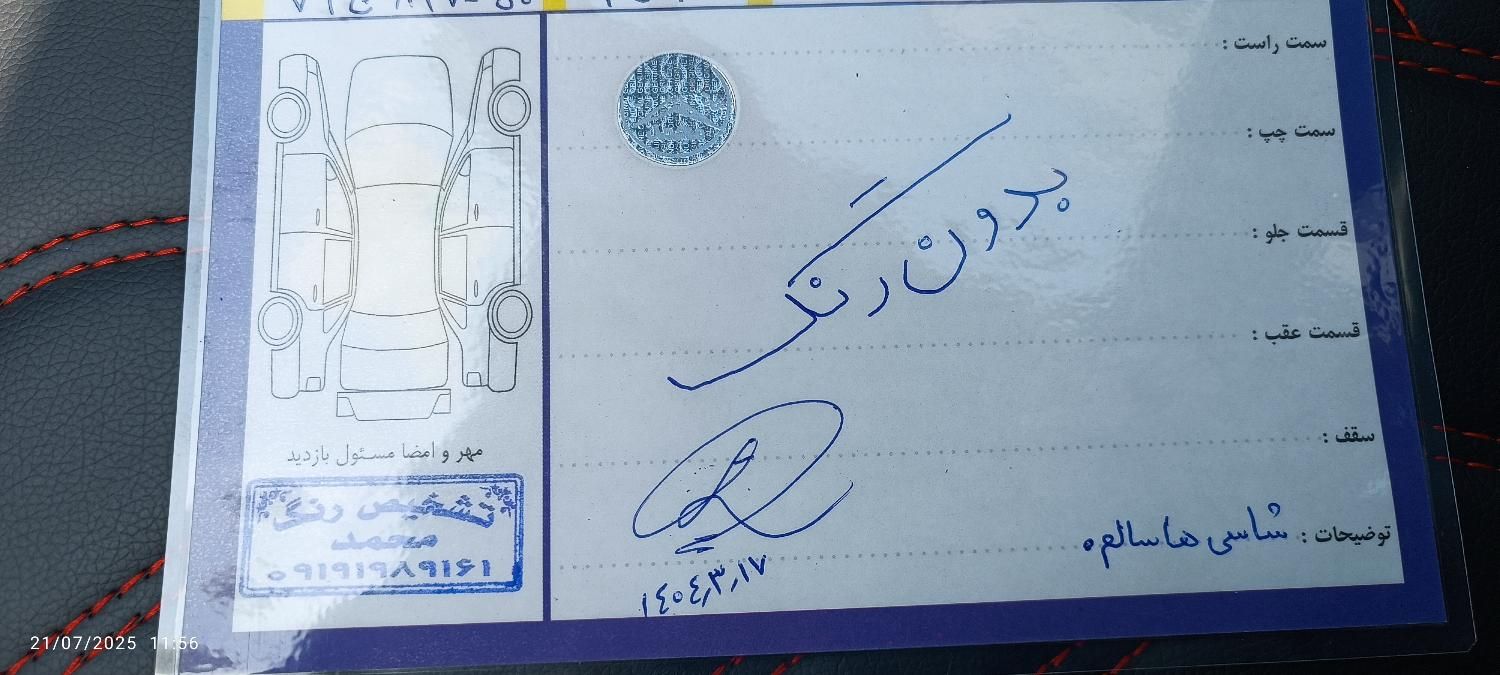 سمت راست :
سمت چپ :
بدون رنگ
قسمت جلو :
قسمت عقب :
سقف :
توضیحات : شاسی ها سالم.
۱۴۰۴٫۳٫۱۷
مهر و امضا مسئول بازدید
تشخیص رنگ
محمد
۰۹۱۹۱۹۸۹۱۶۱
21/07/2025 11:56